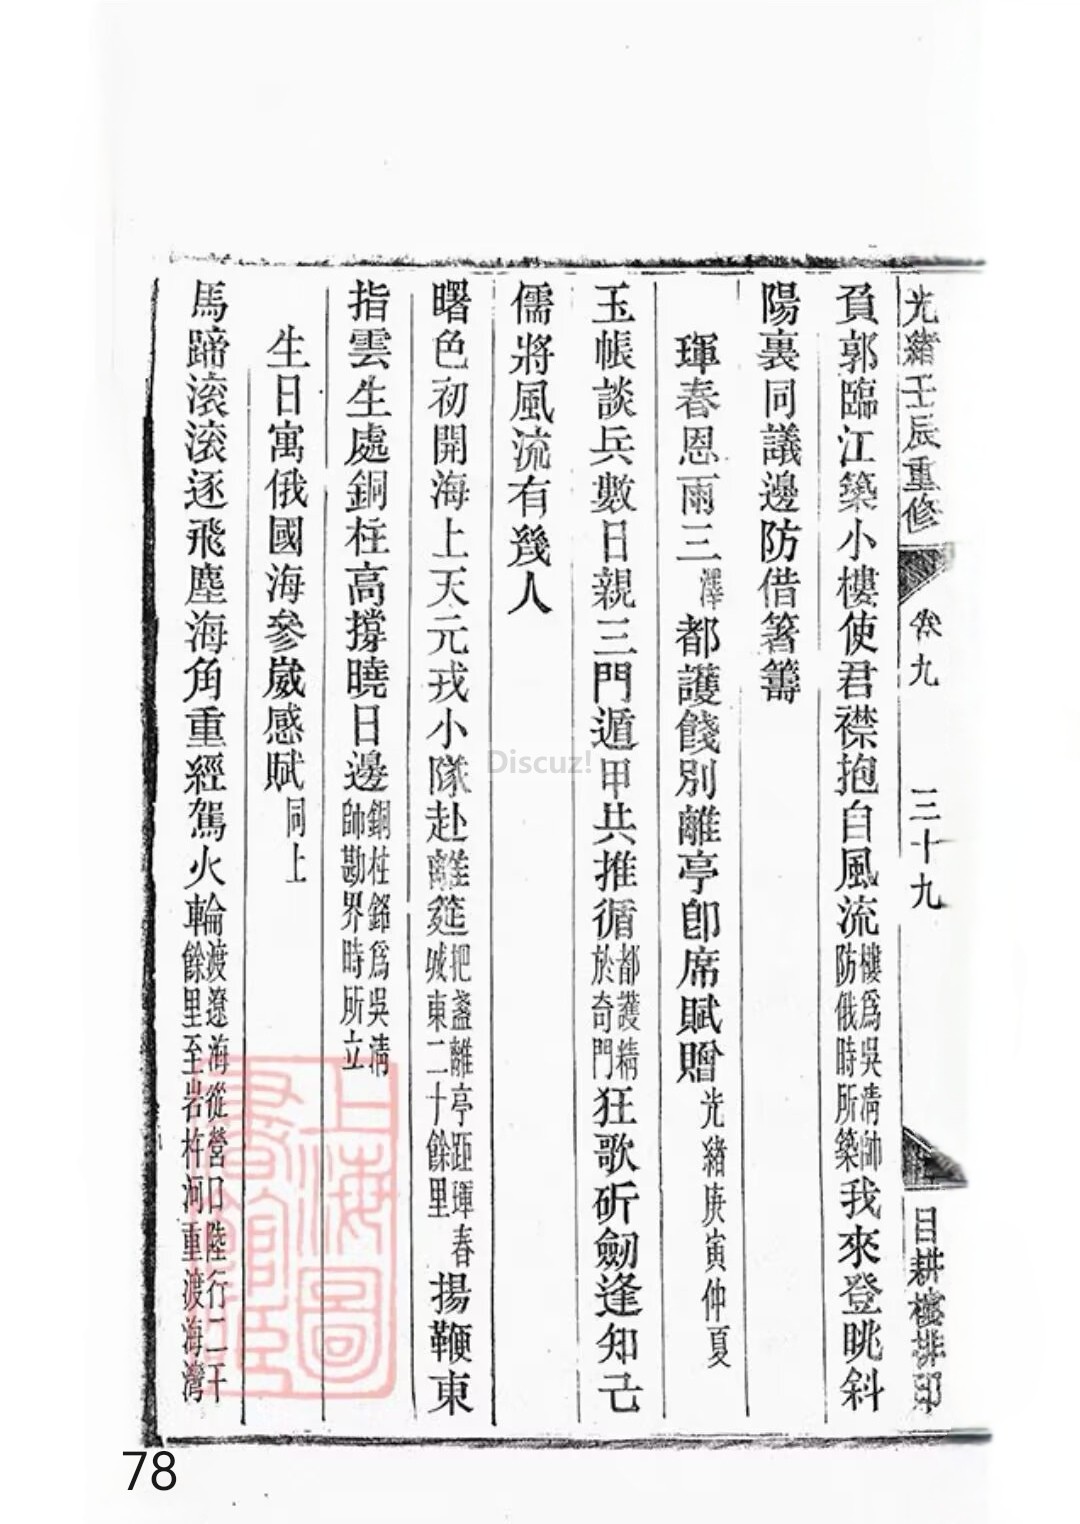 光緒壬辰重修　卷九　三十九　目耕樓排印
負郭臨江築小樓使君襟抱自風流樓爲吳淸帥防俄時所築我來登眺斜
陽裏同議邊防借箸籌
琿春恩雨三澤都護餞別離亭卽席賦贈光緒庚寅仲夏
玉帳談兵數日親三門遁甲共推循都護精於奇門狂歌斫劒逢知己
儒將風流有幾人
曙色初開海上天元戎小隊赴離筵把盞離亭距琿春城東二十餘里揚鞭東
指雲生處銅柱高撐曉日邊銅柱銘爲吳淸帥勘界時所立
生日寓俄國海參崴感賦同上
馬蹄滚滚逐飛塵海角重經駕火輪渡遼海從營口陸行二千餘里至岩杵河重渡海灣
上海圖書館藏
Discuz!
78